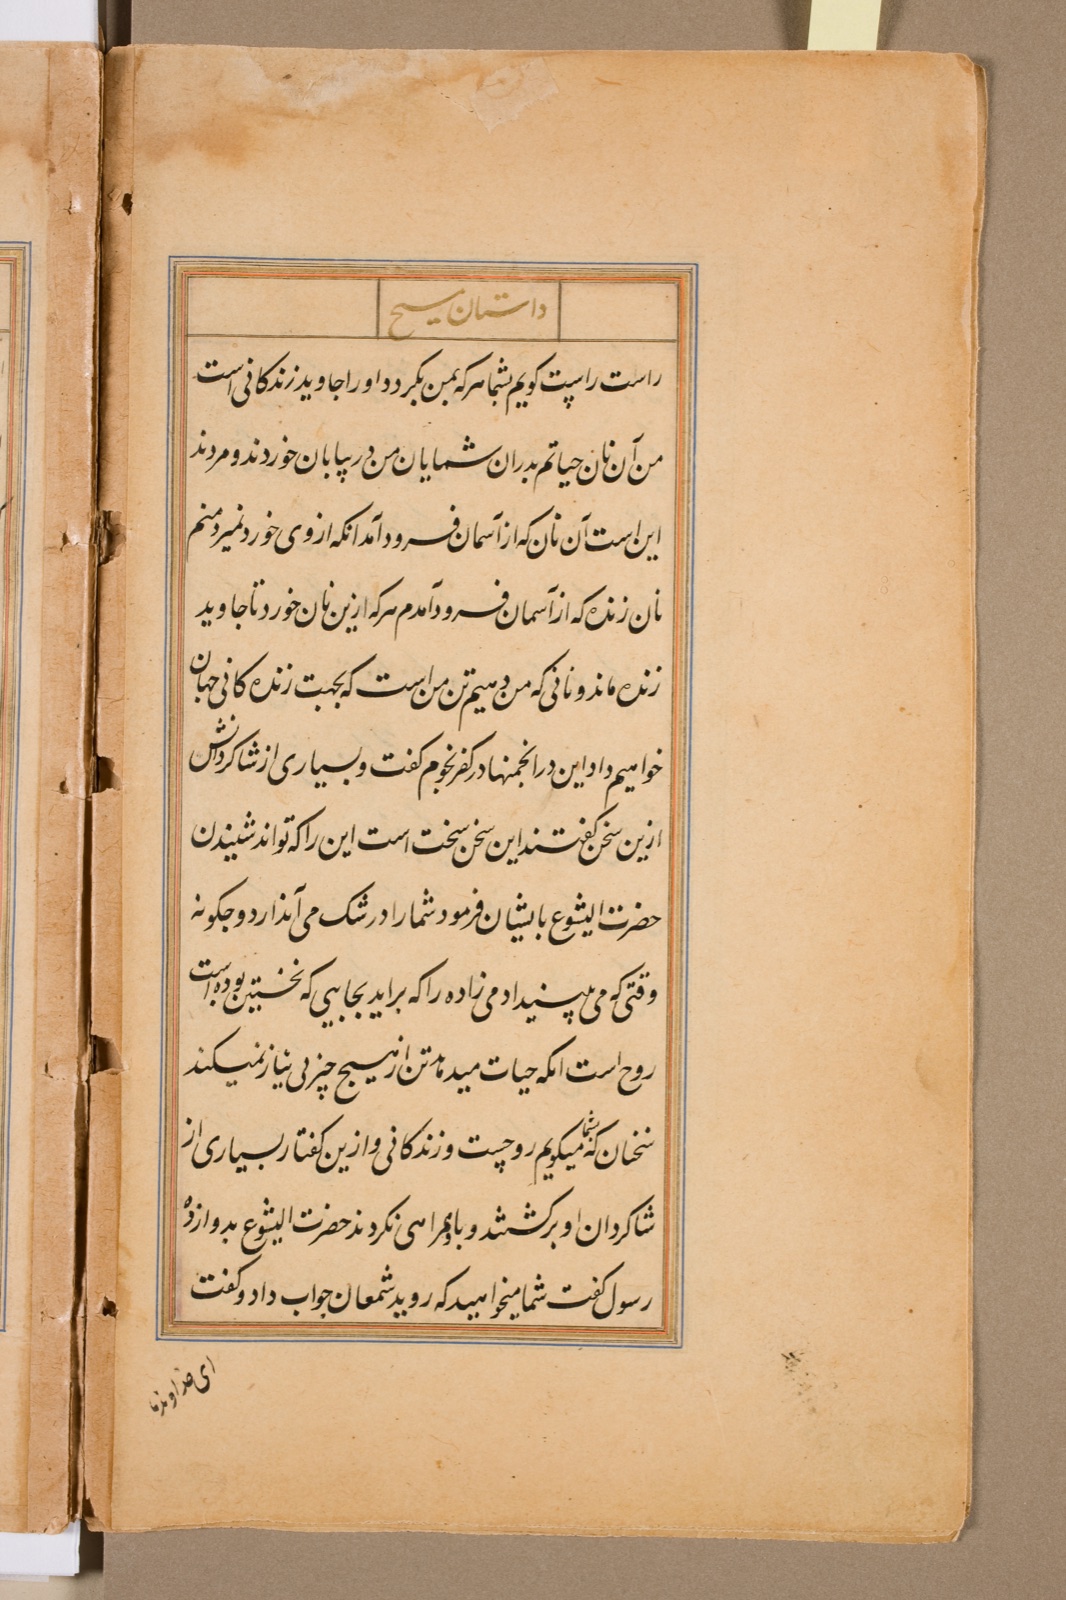 داستان مسیح
راست راست کویم بشما هرکه بمن بکرود اورا جاوید زندکانی است
من آن نان حیاتم پدران شمایان من در بیابان خوردند و مردند
این است آن نان که از آسمان فرود آمد انکه از وی خورد نمیرد منم
نان زنده که از آسمان فرود آمدم هرکه ازین نان خورد تا جاوید
زنده ماند و نانی که من دهیم تن من است که بجهت زنده کانی جهان
خواهیم داد این در انجمنها در کفرنحوم کفت و بسیاری از شاکردانش
ازین سخن کفتند این سخن سخت است این را که تواند شنیدن
حضرت الیشوع بایشان فرمود شما را در شک می آندازد و جکونه
وقتی که می بینید ادمی زاده را که براید بجایی که نخستین بوده است
روح است انکه حیات میدهد تن از هیج چیز بی نیاز نمیکند
سخنان که بشما میکویم روحست و زندکانی و ازین کفتار بسیاری از
شاکردان او برکشتند و باو همراهی نکردند حضرت الیشوع بدوازده
رسول کفت شما میخواهید که روید شمعان جواب داد و کفت
ای خداوند ما